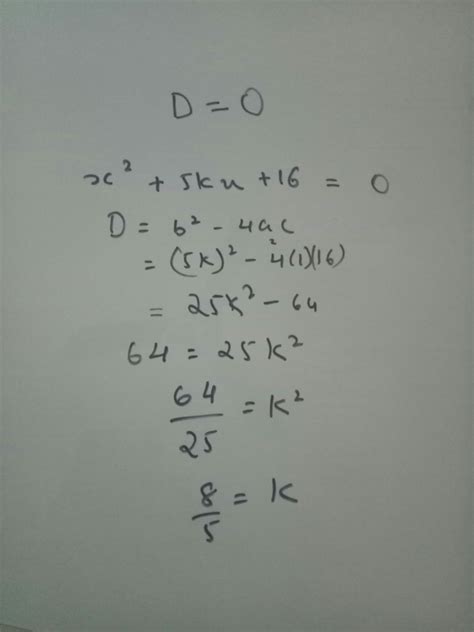 D = 0
x² + 5kx + 16 = 0
D = b² - 4ac
= (5k)² - 4(1)(16)
= 25k² - 64
64 = 25k²
64/25 = k²
8/5 = k